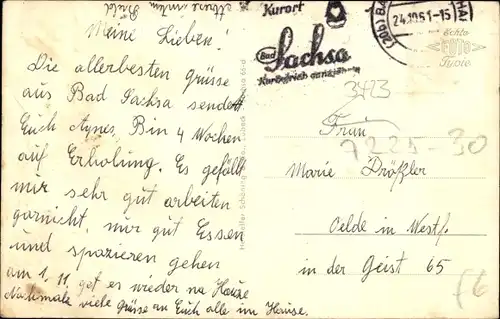 Meine Lieben!
Die allerbesten Grüsse
aus Bad Sachsa sendet
Euch Agnes. Bin 4 Wochen
auf Erholung. Es gefällt
mir sehr gut arbeiten
garnicht, nur gut Essen
und spazieren gehen
am 1.11. get es wieder na Hause
Nochmals viele Grüsse an Euch alle im Hause.
Kurort
Bad Sachsa
24.10.61-15
Echte
Foto
Typie
3423
7225-30
Frau
Marie Drößler
Oelde in Westf.
in der Geist 65
f6